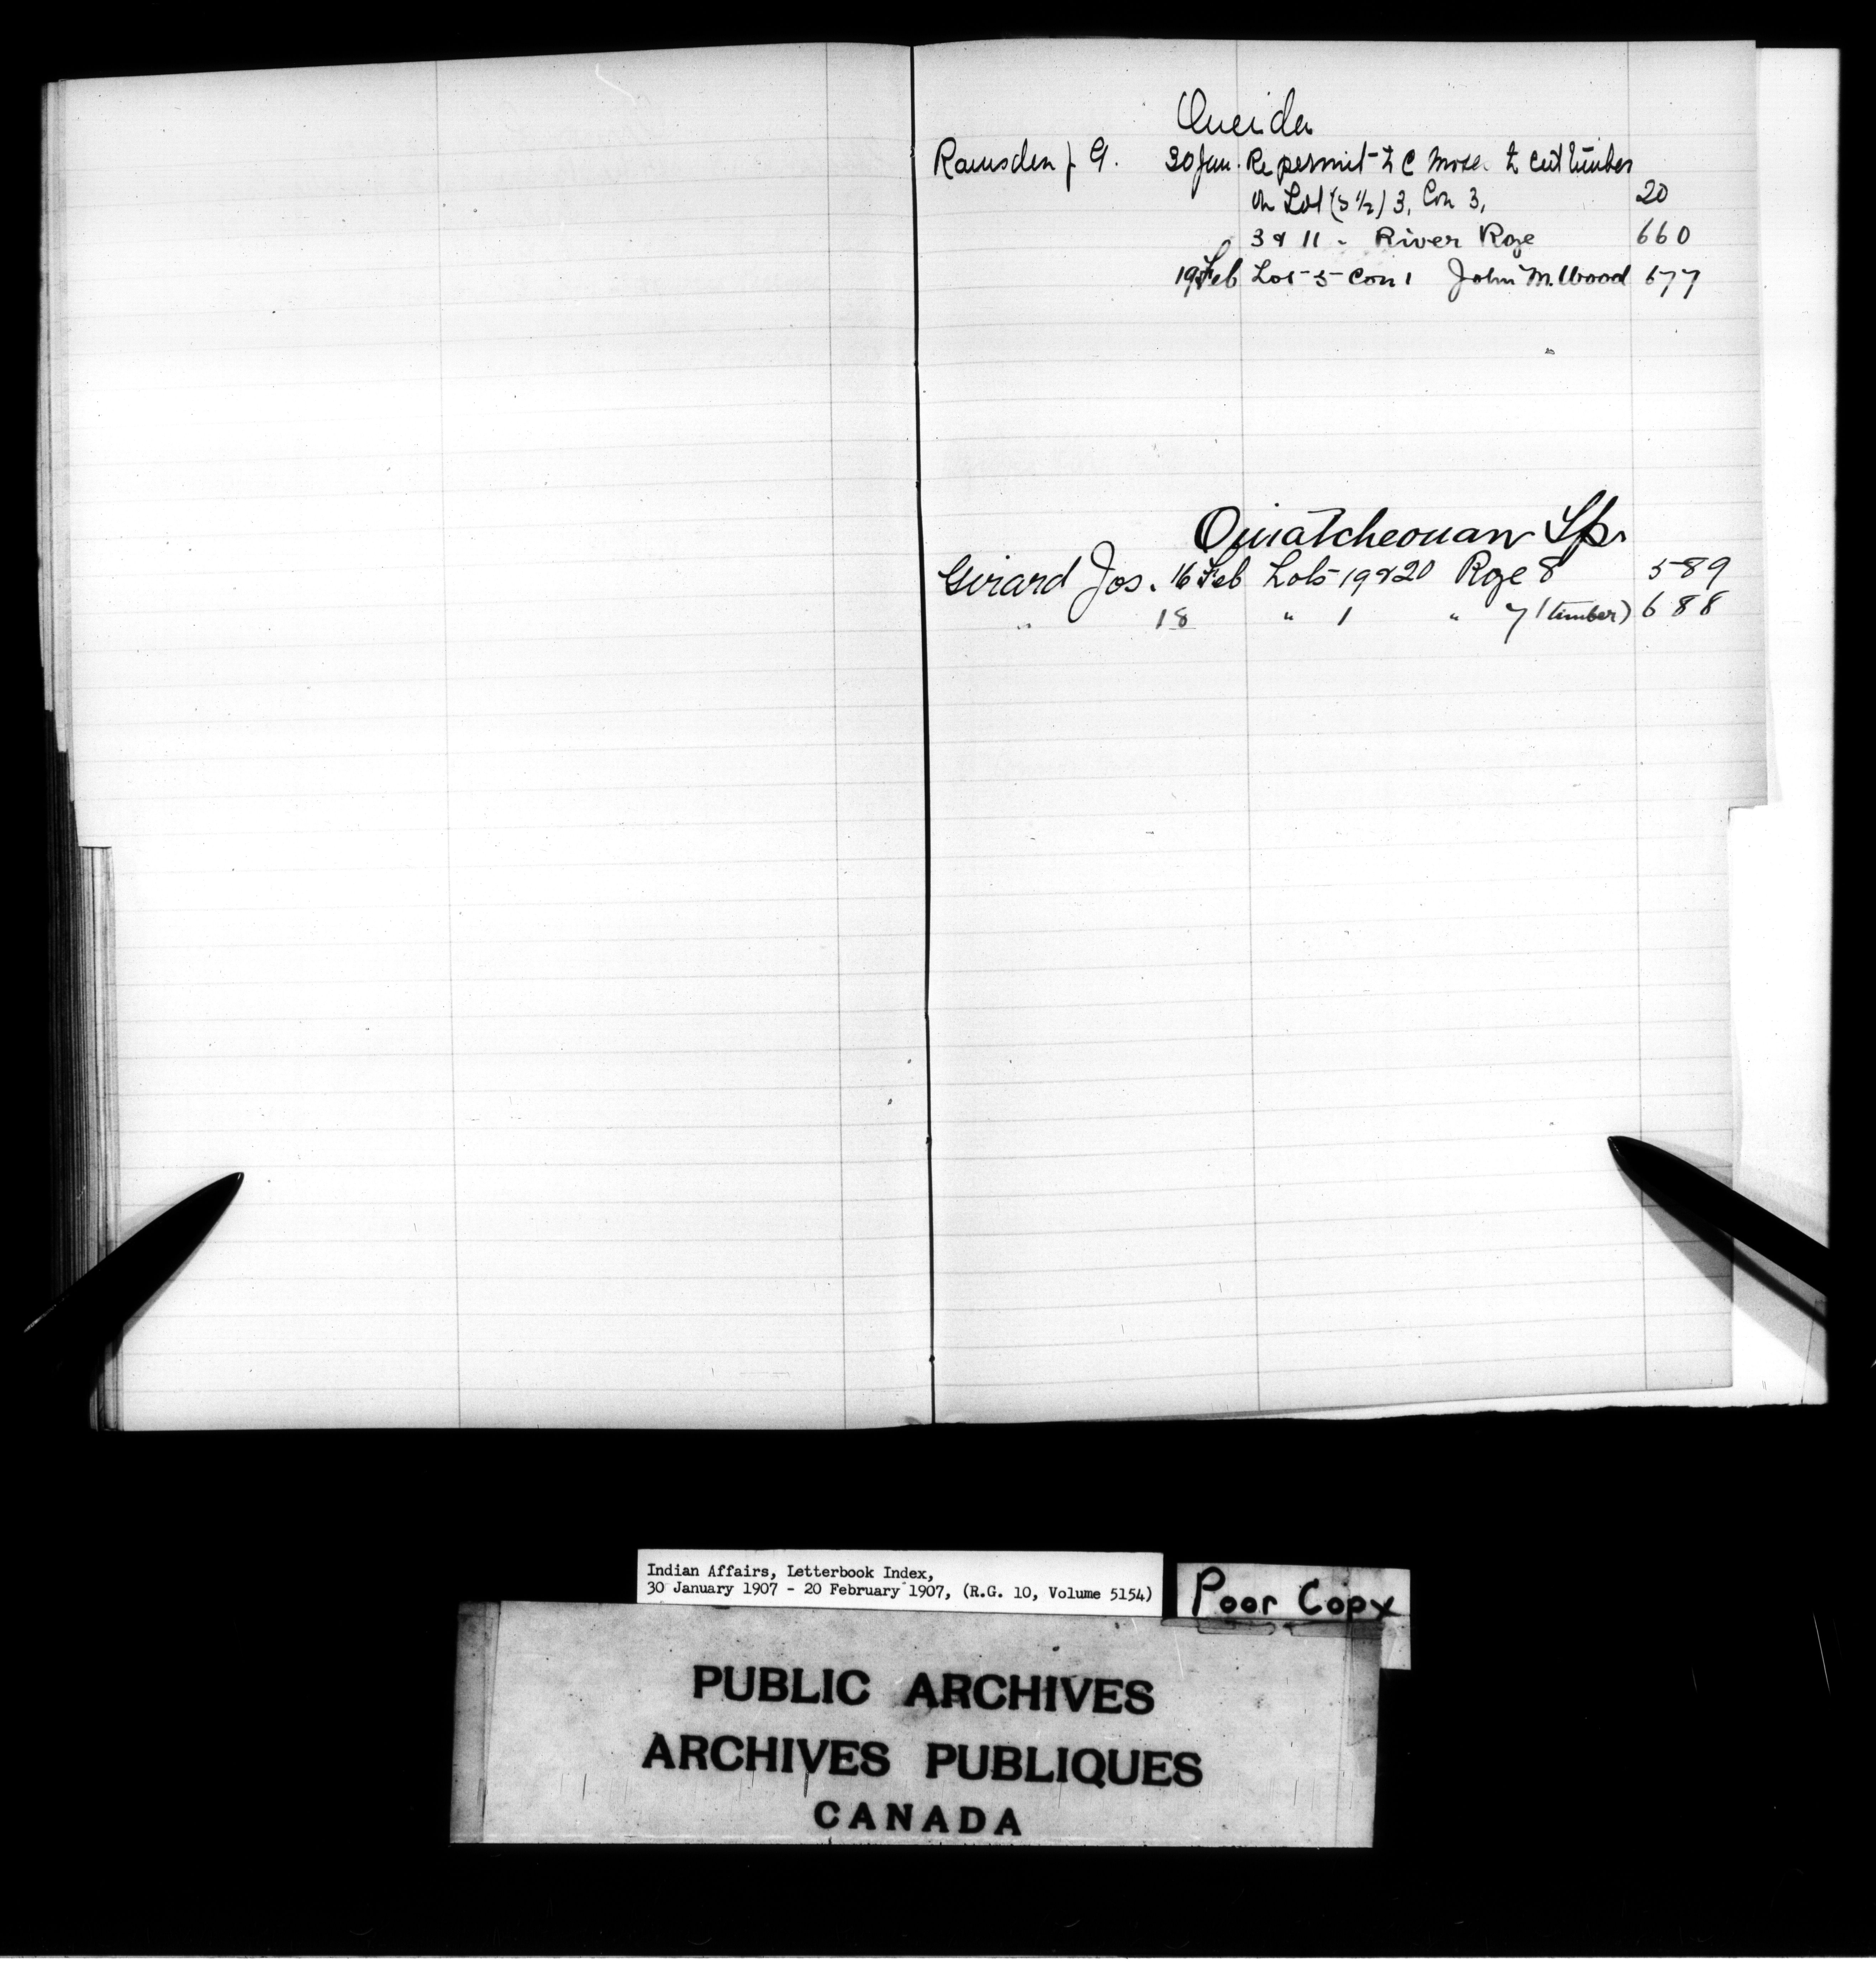 Oneida
Ramsden J. G. 30 Jan. Re permit to C Moses to cut timber
on Lot (S ½) 3, Con 3, 20
3 & 11 - River Rge 660
19 Feb Lot 5 Con 1 John M. Wood 677
Ouiatcheouan Tp.
Girard Jos. 16 Feb Lots 19 & 20 Rge 8 589
" 18 " 1 " 7 (timber) 688
Indian Affairs, Letterbook Index,
30 January 1907 - 20 February 1907, (R.G. 10, Volume 5154)
Poor Copy
PUBLIC ARCHIVES
ARCHIVES PUBLIQUES
CANADA